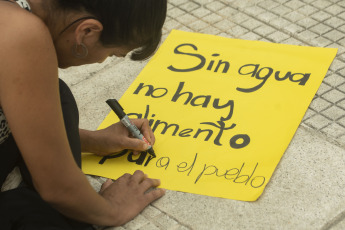 Sin agua
no hay
alimento
para el pueblo